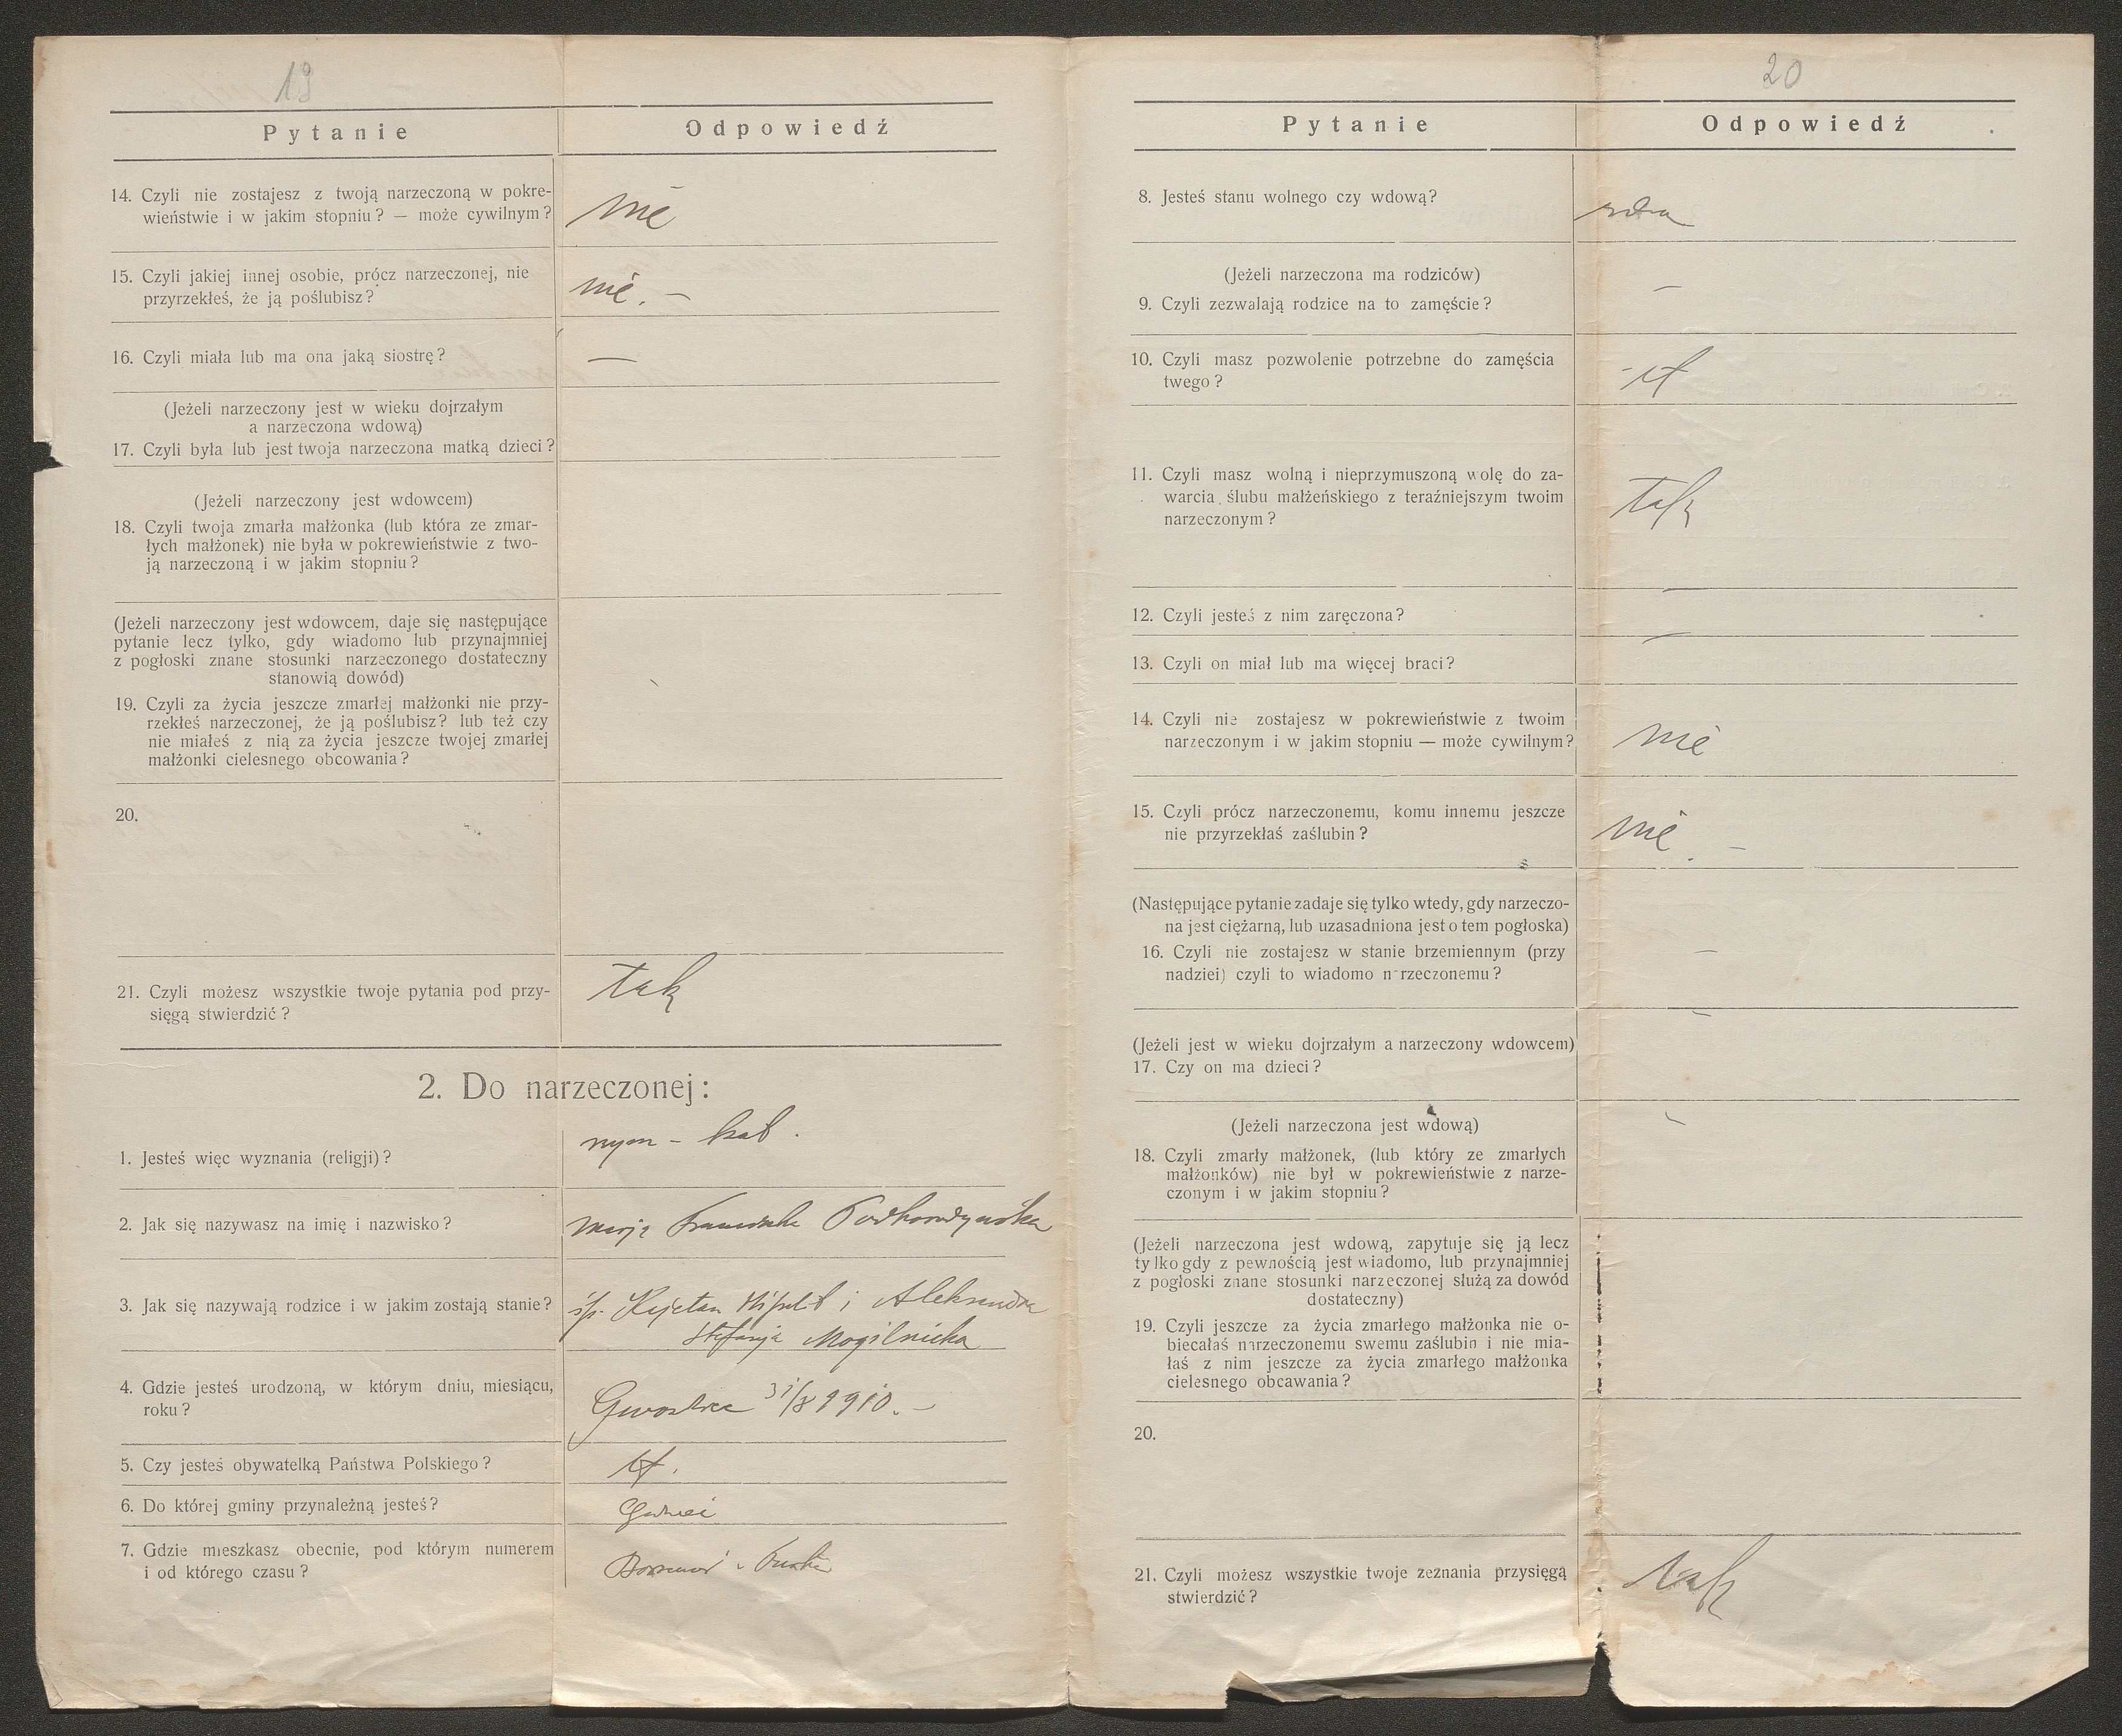 19
Pytanie Odpowiedź
14. Czyli nie zostajesz z twoją narzeczoną w pokre-
wieństwie i w jakim stopniu? — może cywilnym?
nie
15. Czyli jakiej innej osobie, prócz narzeczonej, nie
przyrzekłeś, że ją poślubisz?
nie. —
16. Czyli miała lub ma ona jaką siostrę?
—
(Jeżeli narzeczony jest w wieku dojrzałym
a narzeczona wdową)
17. Czyli była lub jest twoja narzeczona matką dzieci?
(Jeżeli narzeczony jest wdowcem)
18. Czyli twoja zmarła małżonka (lub która ze zmar-
łych małżonek) nie była w pokrewieństwie z two-
ją narzeczoną i w jakim stopniu?
(Jeżeli narzeczony jest wdowcem, daje się następujące
pytanie lecz tylko, gdy wiadomo lub przynajmniej
z pogłoski znane stosunki narzeczonego dostateczny
stanowią dowód)
19. Czyli za życia jeszcze zmarłej małżonki nie przy-
rzekłeś narzeczonej, że ją poślubisz? lub też czy
nie miałeś z nią za życia jeszcze twojej zmarłej
małżonki cielesnego obcowania?
20.
21. Czyli możesz wszystkie twoje pytania pod przy-
sięgą stwierdzić?
tak
2. Do narzeczonej:
1. Jesteś więc wyznania (religji)?
rzym - kat.
2. Jak się nazywasz na imię i nazwisko?
Marja Franciszka Podhorodyńska
3. Jak się nazywają rodzice i w jakim zostają stanie?
śp. Kajetan Hipolit i Aleksandra
Stefanja Mogilnicka
4. Gdzie jesteś urodzoną, w którym dniu, miesiącu,
roku?
31/8 1910. —
5. Czy jesteś obywatelką Państwa Polskiego?
6. Do której gminy przynależną jesteś?
7. Gdzie mieszkasz obecnie, pod którym numerem
i od którego czasu?
20
Pytanie Odpowiedź
8. Jesteś stanu wolnego czy wdową?
(Jeżeli narzeczona ma rodziców)
9. Czyli zezwalają rodzice na to zamęście?
—
10. Czyli masz pozwolenie potrzebne do zamęścia
twego?
11. Czyli masz wolną i nieprzymuszoną wolę do za-
warcia ślubu małżeńskiego z teraźniejszym twoim
narzeczonym?
tak
12. Czyli jesteś z nim zaręczona?
—
13. Czyli on miał lub ma więcej braci?
—
14. Czyli nie zostajesz w pokrewieństwie z twoim
narzeczonym i w jakim stopniu — może cywilnym?
nie
15. Czyli prócz narzeczonemu, komu innemu jeszcze
nie przyrzekłaś zaślubin?
nie. —
(Następujące pytanie zadaje się tylko wtedy, gdy narzeczo-
na jest ciężarną, lub uzasadniona jest o tem pogłoska)
16. Czyli nie zostajesz w stanie brzemiennym (przy
nadziei) czyli to wiadomo narzeczonemu?
—
(Jeżeli jest w wieku dojrzałym a narzeczony wdowcem)
17. Czy on ma dzieci?
—
(Jeżeli narzeczona jest wdową)
18. Czyli zmarły małżonek, (lub który ze zmarłych
małżonków) nie był w pokrewieństwie z narze-
czonym i w jakim stopniu?
—
(Jeżeli narzeczona jest wdową, zapytuje się ją lecz
tylko gdy z pewnością jest wiadomo, lub przynajmniej
z pogłoski znane stosunki narzeczonej służą za dowód
dostateczny)
19. Czyli jeszcze za życia zmarłego małżonka nie o-
biecałaś narzeczonemu swemu zaślubin i nie mia-
łaś z nim jeszcze za życia zmarłego małżonka
cielesnego obcawania?
20.
21. Czyli możesz wszystkie twoje zeznania przysięgą
stwierdzić?
tak